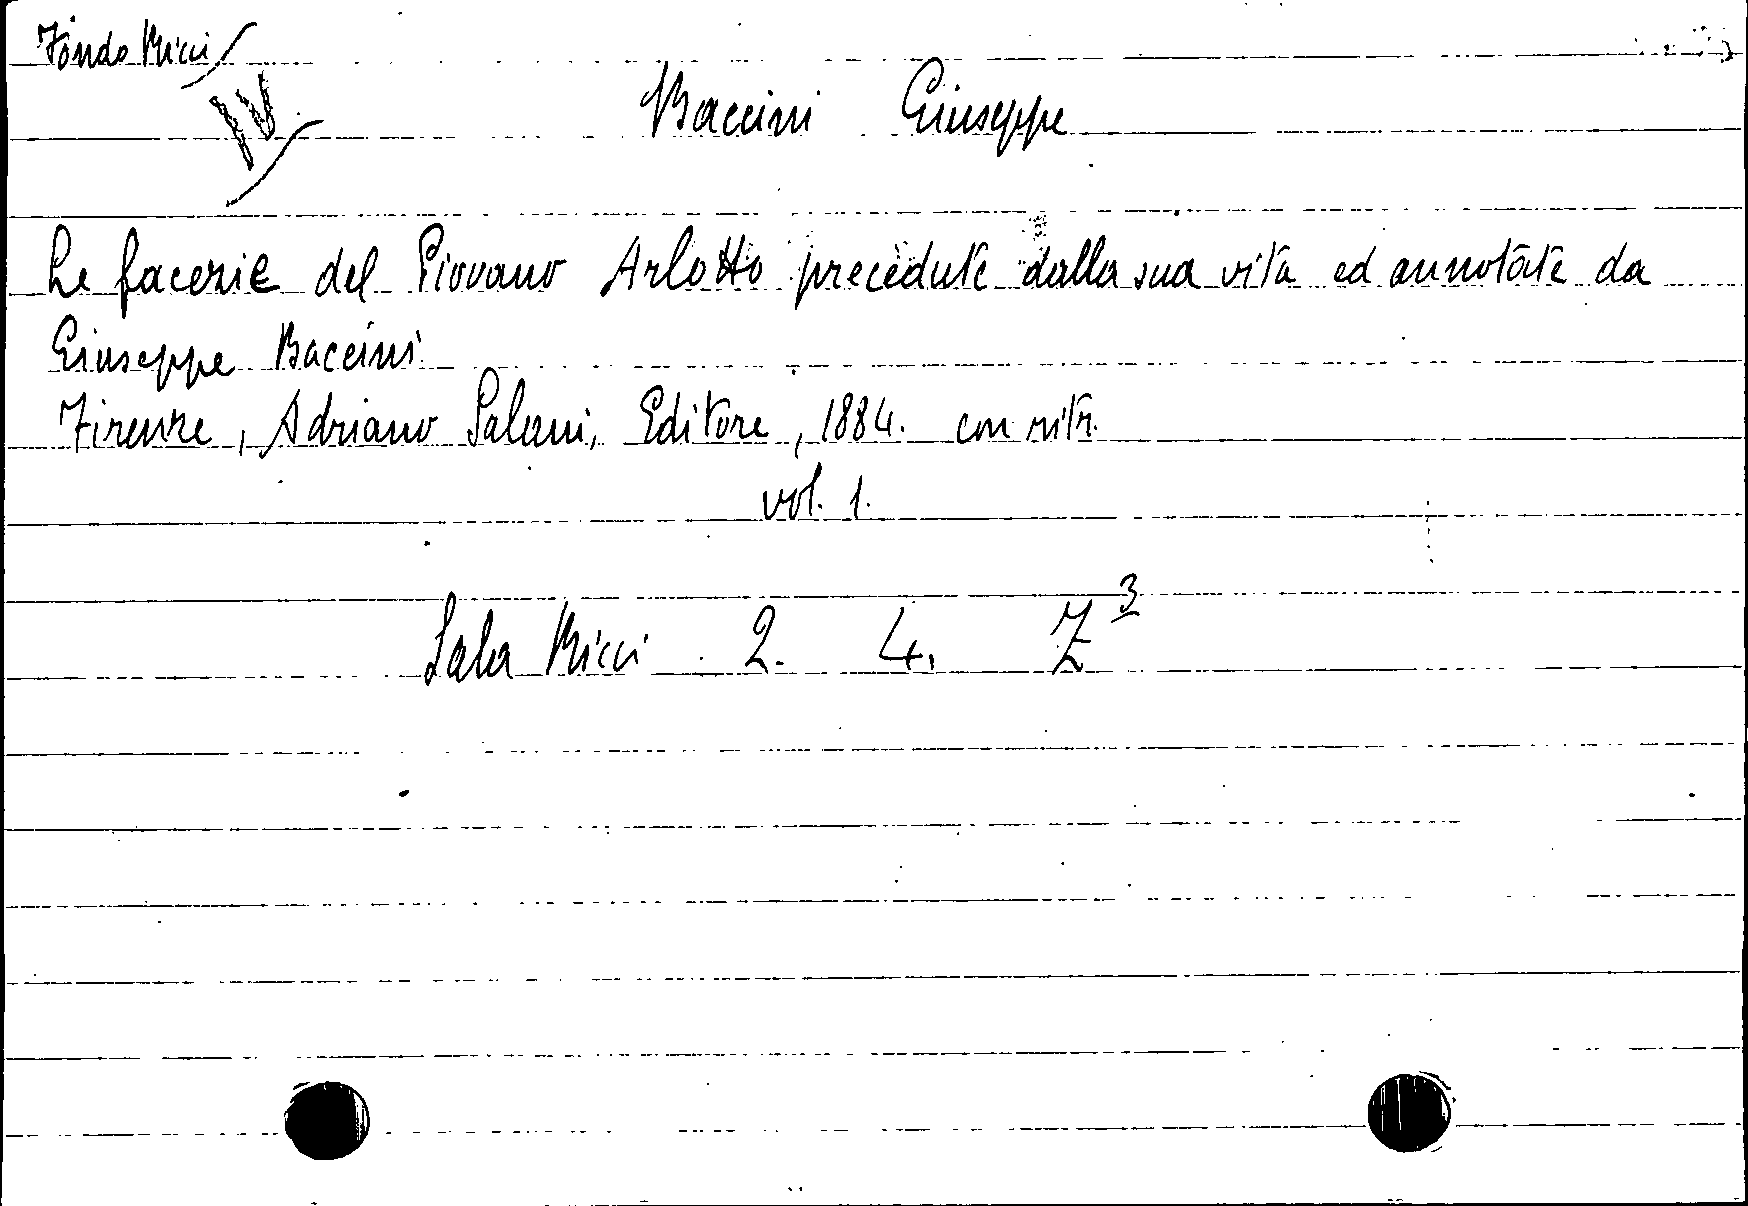 Fondo Ricci
IV
Baccini Giuseppe
Le facezie del Piovano Arlotto precedute dalla sua vita ed annotate da
Giuseppe Baccini
Firenze, Adriano Salani, Editore, 1884. con ritr.
vol. 1.
Sala Ricci 2. 4. Z³